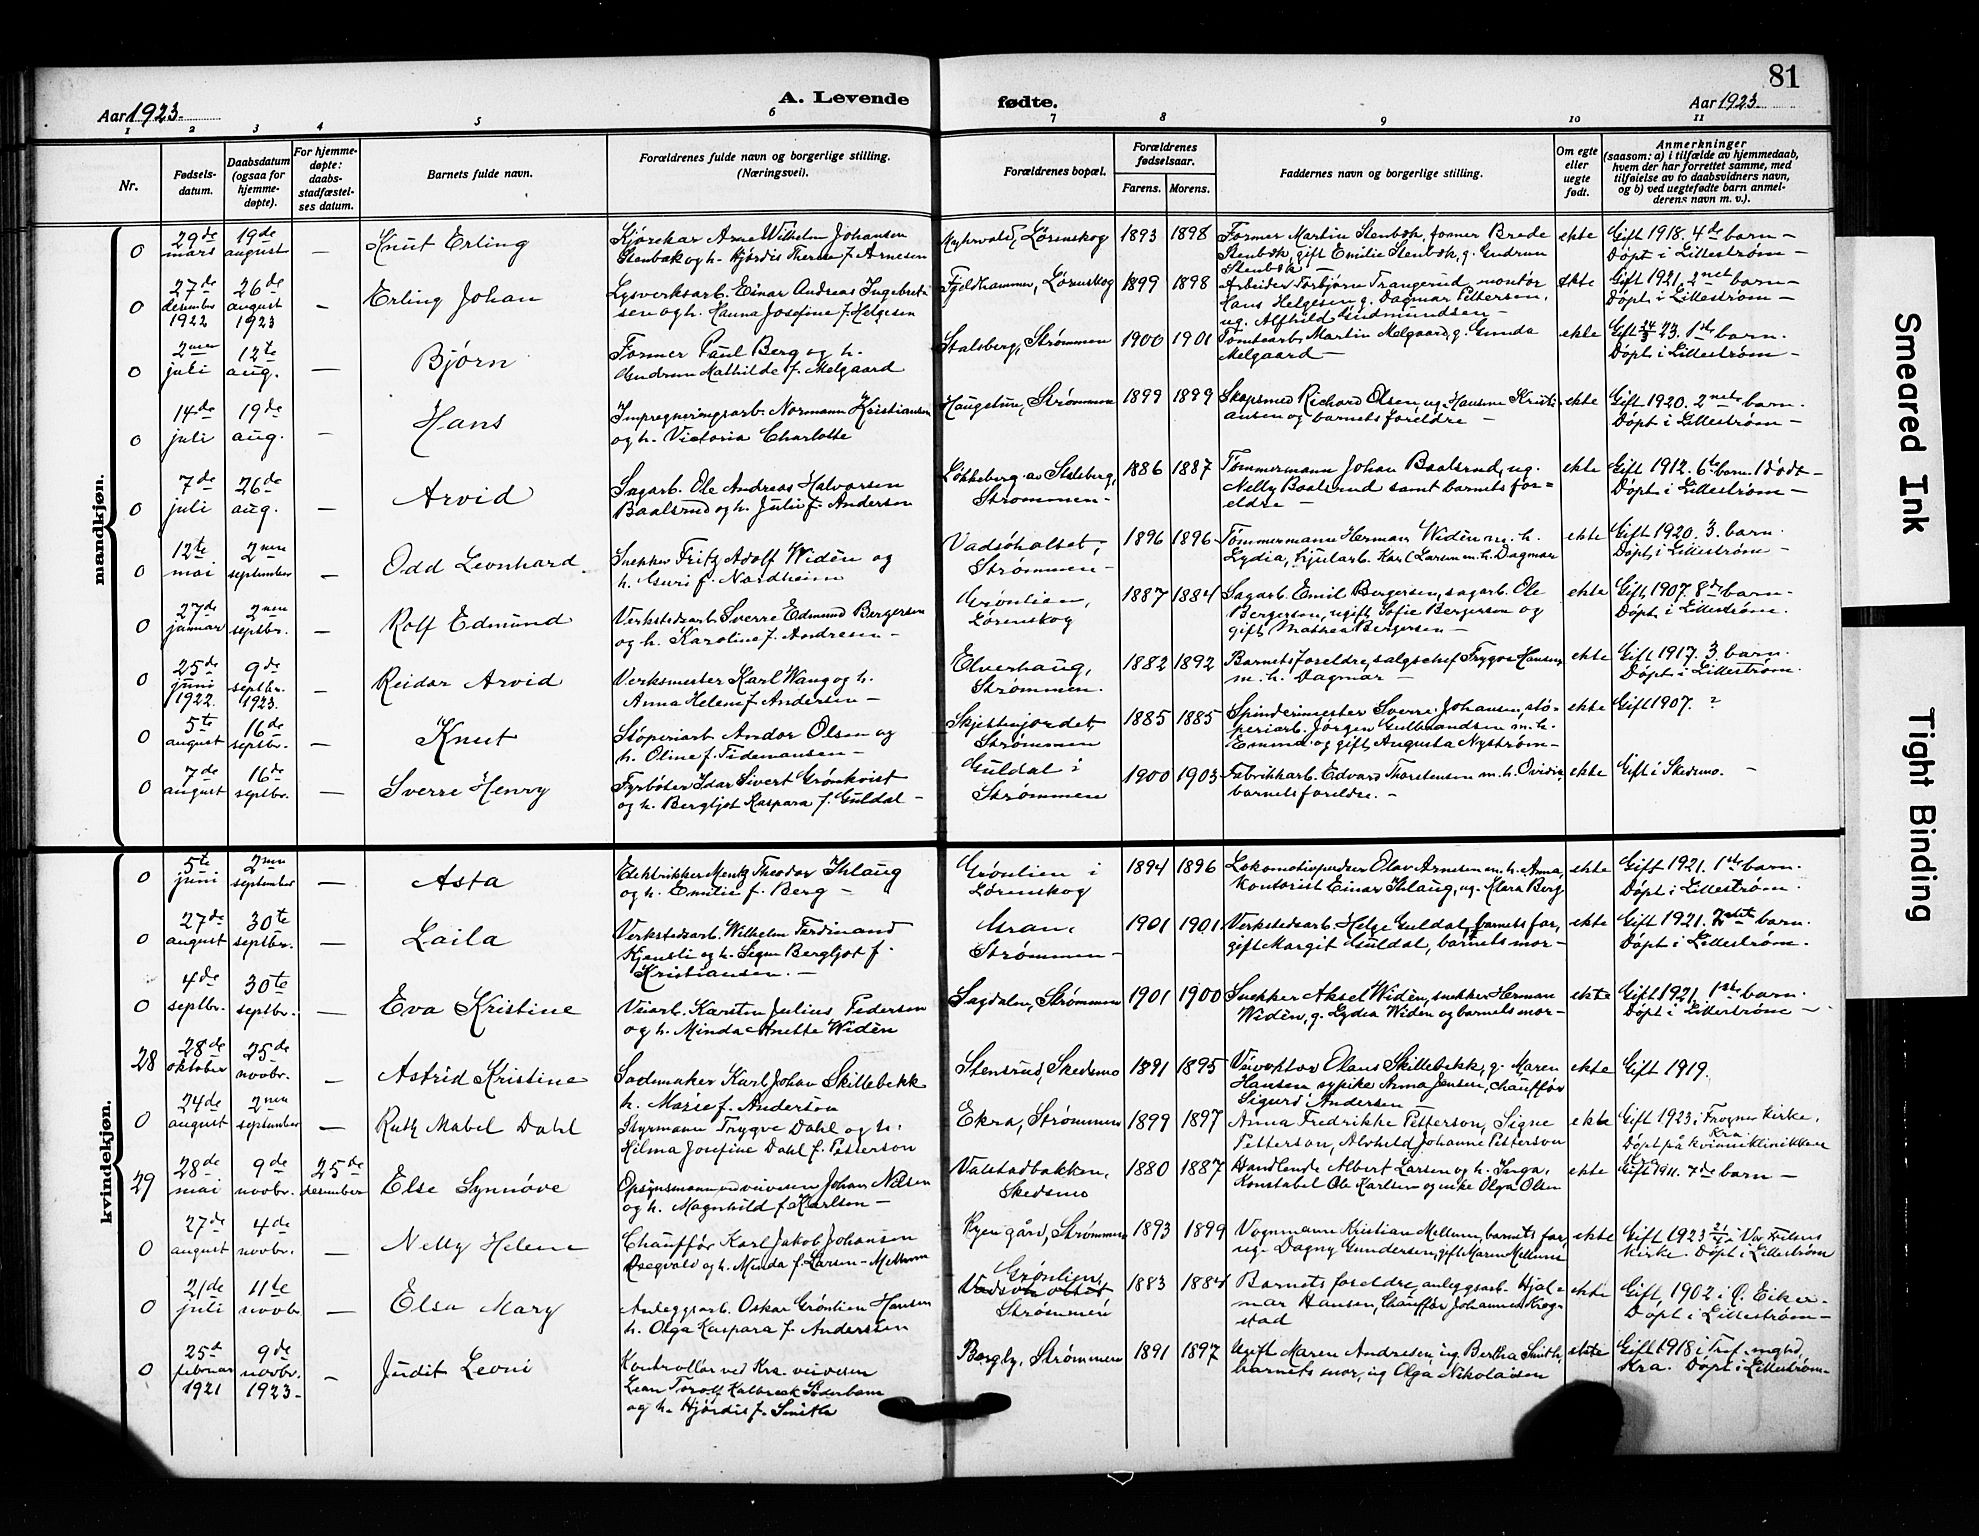 81
Aar 1923.
A. Levende
fødte.
Aar 1923
1 2 3 4 5 6 7 8 9 10 11
Nr.
Fødsels-
datum.
Daabsdatum
(ogsaa for
hjemme-
døpte).
For hjemme-
døpte:
daabs-
stadfæstel-
ses datum.
Barnets fulde navn.
Forældrenes fulde navn og borgerlige stilling.
(Næringsvei).
Forældrenes bopæl.
Forældrenes
fødselsaar.
Farens. Morens.
Faddernes navn og borgerlige stilling.
Om egte
eller
uegte
født.
Anmerkninger
(saasom: a) i tilfælde av hjemmedaab,
hvem der har forrettet samme, med
tilføielse av to daabsvidners navn,
og b) ved uegtefødte barn anmel-
derens navn m. v.).
mandkjøn.
0 29de mars 19de august — Knut Erling
Kjørekar Arne Wilhelm Johansen
Stenbæk og h. Hjørdis Therese f. Arnesen
Lørenskog 1893 1898
Former Martin Stenbæk, former Brede
Stenbæk, gift Emilie Stenbæk, g. Gudrun
Stenbæk —
ekte
Gift 1918. 4de barn —
Døpt i Lillestrøm —
0 27de desember 1922 26de august 1923 — Erling Johan
Lysverksarb. Einar Andreas Ingebret-
sen og h. Hanna Josefine f. Helgesen
Fjeldhammer, Lørenskog 1899 1898
Arbeider Torbjørn Trangerud, montør
Hans Helgesen g. Dagmar Pettersen,
ug. Alfhild Gudmundsen —
ekte
Gift 1921. 2net barn —
Døpt i Lillestrøm —
0 2nen juli 12te aug. — Bjørn
Former Paul Berg og h.
Gudrun Mathilde f. Melgaard
Stalsberg, Strømmen 1900 1901
Tomtearb. Martin Melgaard, g. Gunda
Melgaard —
ekte
Gift 24/3 23. 1ste barn.
Døpt i Lillestrøm —
0 14de juli 19de aug. — Hans
Impregneringsarb. Normann Kristiansen
og h. Victoria Charlotte
Haugstua, Strømmen 1899 1899
Skapsmed Richard Olsen, ug. Hansine Kristi-
ansen og barnets foreldre —
ekte
Gift 1920. 2net barn.
Døpt i Lillestrøm —
0 7de juli 26de aug. — Arvid
Sagarb. Ole Andreas Halvorsen
Baalsrud og h. Julie f. Anderson
Løkkeberg av Stalsberg,
Strømmen — 1886 1887
Tømmermann Johan Baalsrud, ug.
Nelly Baalsrud samt barnets for-
eldre —
ekte
Gift 1912. 6te barn. 1 dødt —
Døpt i Lillestrøm —
0 12te mai 2nen september — Odd Leonhard
Snekker Fritz Adolf Widèn og
h. Guri f. Nordheim
Vadsöholtet,
Strømmen — 1896 1896
Tømmermann Herman Widèn m. h.
Lydia, hjularb. Karl Larsen m. h. Dagmar
ekte
Gift 1920. 3. barn.
Døpt i Lillestrøm —
0 27de januar 2nen septbr. — Rolf Edmund
Verkstedsarb. Sverre Edmund Bergersen
og h. Karoline f. Andresen —
Grønlien,
Lørenskog 1887 1884
Sagarb. Emil Bergersen, sagarb. Ole
Bergersen, ugift Sofie Bergersen og
gift Mathea Bergersen —
ekte
Gift 1907. 8de barn —
Døpt i Lillestrøm.
0 25de juni 1922 9de septbr. 1923. — Reidar Arvid
Verksmester Karl Wang og h.
Anna Helene f. Andersen —
Elverhaug,
Strømmen. 1882 1892
Barnets foreldre, salgschef Trygve Hansen
m. h. Dagmar —
ekte
Gift 1917. 3. barn.
Døpt i Lillestrøm.
0 5te august 16de septbr. — Knut
Støperiarb. Amdor Olsen og
h. Oline f. Tidemansen —
Skjettenjordet,
Strømmen 1885 1885
Spinderimester Sverre Johansen, stø-
periarb. Jørgen Gulbrandsen m. h.
Emma og gift Augusta Nystrøm —
ekte
Gift 1907. ?
0 7de august 16de septbr. — Sverre Henry
Fyrbøter Idar Sivert Grønkvist
og h. Bergljot Kaspara f. Guldal —
Guldal i
Strømmen 1900 1903
Fabrikkarb. Edvard Thorstensen m. h. Ovidia,
barnets foreldre. —
ekte
Gift i Skedsmo. —
kvindekjøn.
0 5te juni 2nen september — Asta
Elektrikker Mentz Theodor Ihlaug
og h. Emilie f. Berg —
Grønlien i
Lørenskog 1894 1896
Lokomotivpudser Olav Arnesen m. h. Anna,
kontorist Einar Ihlaug, ug. Klara Berg
ekte
Gift 1921. 1ste barn.
Døpt i Lillestrøm.
0 27de august 30te septbr. — Laila
Verkstedsarb. Wilhelm Ferdinand
Kjensli og h. Signe Bergljot f.
Kristiansen. —
Gran,
Strømmen — 1901 1901
Verkstedsarb. Helge Guldal, barnets far,
gift Margit Guldal, barnets mor —
ekte
Gift 1921. 2net barn.
Døpt i Lillestrøm.
0 4de septbr. 30te septbr. — Eva Kristine
Veiarb. Karsten Julius Pedersen
og h. Minda Anette Widèn
Sagdalen, Strømmen 1901 1900
Snekker Aksel Widèn, snekker Herman
Widèn, g. Lydia Widèn og barnets mor —
ekte
Gift 1921. 1ste barn.
Døpt i Lillestrøm —
28 28de oktober 25de novbr. — Astrid Kristine
Sademaker Karl Johan Skillebekk
h. Marie f. Anderson
Stensrud, Skedsmo 1891 1895
Veivokter Olaus Skillebekk, g. Maren
Hansen, sypike Anna Jensen, chauffør
Sigurd Andersen
ekte
Gift 1919.
0 24de august 2nen september — Ruth Mabel Dahl
Styrmann Trygve Dahl og h.
Hilma Josefine Dahl f. Petterson
Ekra, Strømmen 1899 1897
Anna Fredrikke Petterson, Signe
Petterson, Alvhild Johanne Petterson
ekte
Gift 1923 i Frogner kirke,
Kra
Døpt på kvinneklinikken
29 28de mai 9de novbr. 25de desember Else Synnöve
Opsynsmann ved veivesen Johan Nilsen
og h. Magnhild f. Karlsen —
Valstadbakken,
Skedsmo 1880 1887
Handlende Albert Larsen og h. Inga,
Konstabel Ole Karlsen og enke Olga Olsen
ekte
Gift 1911. 7de barn —
0 27de august 4de novbr. — Nelly Helene
Chauffør Karl Jakob Johansen
Rægvald og h. Minda f. Larsen-Mellum
Ryen gård, Strømmen 1893 1899
Vognmann Kristian Mellum, barnets far,
ug. Dagny Gundersen, gift Maren Mellum
ekte
Gift 1923 21/4 i Vor Frelsers
kirke. Døpt i Lillestrøm
0 21de juli 11te novbr — Elsa Mary
Anleggsarb. Oskar Grønlien Hansen
h. Olga Kaspara f. Andersen
Grønlien,
Vadsöholtet
Strømmen 1883 1884
Barnets foreldre, anleggsarb. Hjal-
mar Hansen, Chauffør Johannes Krog-
stad
ekte
Gift 1902 i Ø. Eiker —
Døpt i Lillestrøm —
0 25t februar 1921 9de novbr. 1923 — Judit Leoni
Kontrollør ved Kra. veivesen
Torolf Kalbrek Söderbom
og h. Hjördis f. Smith
Bergby, Strømmen 1891 1897
Ugift Maren Andresen, ug. Bertha Smith,
barnets mor, ug Olga Nikolaisen
ekte
Gift 1918 i
Kra. Døpt i Lillestrøm —
Smeared Ink
Tight Binding